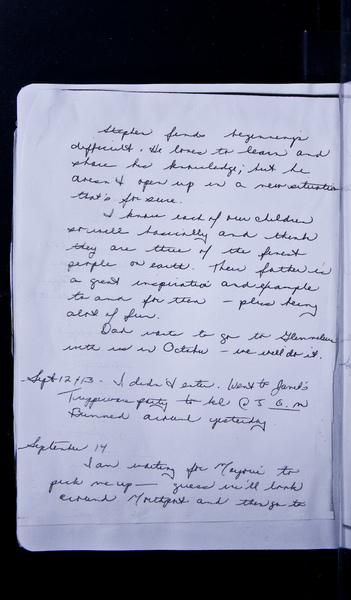 Stephen finds beginnings
difficult. He loves to learn and
share his knowledge; but he
doesn't open up in a new situation
that's for sure.
I know each of our children
so well basically and think
they are three of the finest
people on earth. Their father is
a great inspiration and example
to and for them - plus being
a lot of fun.
Dad wants to go to
with us in October - we will do it.
Sept 12/13 - I didn't enter. Went to
party to
Bummed around yesterday
September 14
I am waiting for to
pick me up - guess we'll look
around and then go to